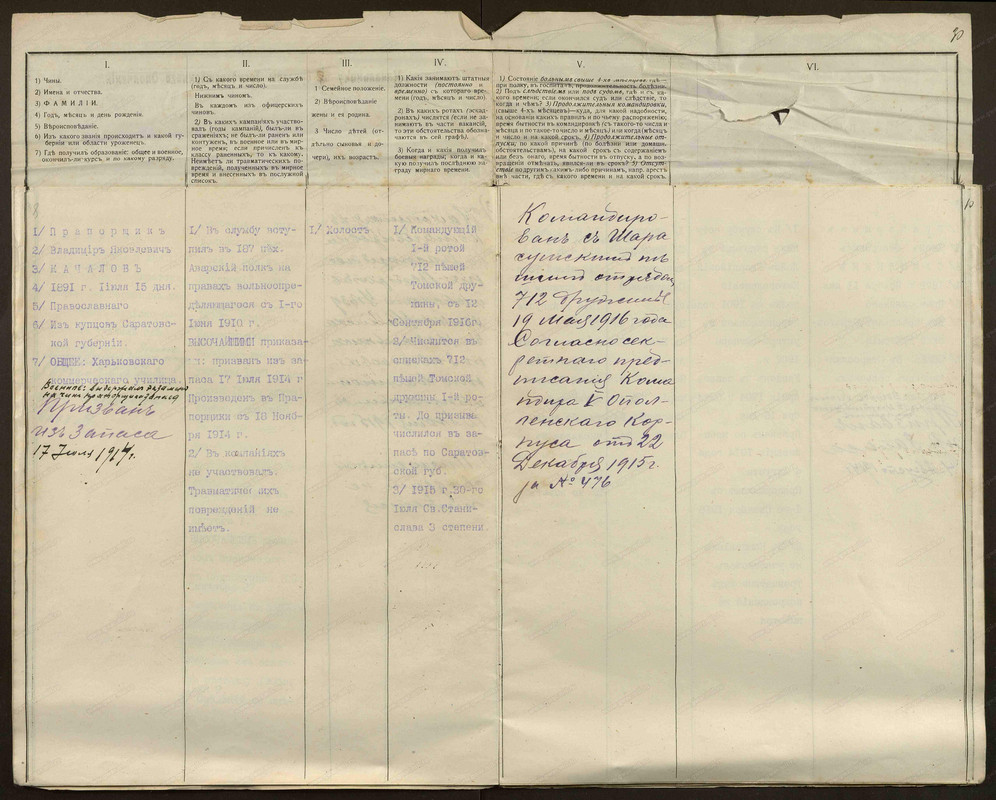 30
I.
1) Чинъ.
2) Имена и отчества.
3) ФАМИЛІИ.
4) Годъ, мѣсяцъ и день рожденія.
5) Вѣроисповѣданіе.
6) Изъ какого званія происходитъ и какой губерніи или области уроженецъ.
7) Гдѣ получилъ образованіе: общее и военное, окончилъ-ли-курсъ и по какому разряду.
II.
1) Съ какого времени на службѣ
(годъ, мѣсяцъ и число).
Нижнимъ чиномъ.
Въ каждомъ изъ офицерскихъ
чиновъ.
2) Въ какихъ кампаніяхъ участво-
валъ (годы кампаній), былъ-ли въ
сраженіяхъ; не былъ-ли раненъ или
контуженъ, въ военное или въ мир-
ное время; если причисленъ къ
классу раненныхъ, то къ какому.
Неимѣетъ ли травматическихъ по-
врежденій, полученныхъ въ мирное
время и внесенныхъ въ послужной
списокъ.
III.
1) Семейное положеніе.
2) Вѣроисповѣданіе
жены и ея родина.
3) Число дѣтей (от-
дѣльно сыновья и до-
чери), ихъ возрастъ.
IV.
1) Какія занимаютъ штатныя
должности (постоянно и
временно) съ котораго вре-
мени (годъ, мѣсяцъ и число).
2) Въ какихъ ротахъ (эскад-
ронахъ) числятся (если не за-
нимаютъ въ части вакансій,
то эти обстоятельства обозна-
чаются въ сей графѣ).
3) Когда и какія получилъ
боевыя награды; когда и ка-
кую получилъ послѣднюю на-
граду мирнаго времени.
V.
1) Состояніе больнымъ свыше 4-хъ мѣсяцевъ, гдѣ—
при полку, въ госпиталѣ, продолжительность болѣзни.
2) Подъ слѣдствіемъ или подъ судомъ, гдѣ и съ ка-
кого времени; если окончился судъ или слѣдствіе, то
когда и чѣмъ? 3) Продолжительныя командировки,
(свыше 4-хъ мѣсяцевъ)—куда, по какой надобности,
на основаніи какихъ правилъ и по чьему распоряженію;
время бытности въ командировкѣ (съ такого-то числа и
мѣсяца и по такое-то число и мѣсяцъ) и на когда (мѣсяцъ
и число и на какой срокъ. 4) Продолжительные от-
пуски, по какой причинѣ (по болѣзни или домашн.
обстоятельствамъ), на какой срокъ съ содержаніемъ
или безъ онаго, время бытности въ отпуску, а по воз-
вращеніи отмѣчать, явился-ли въ срокъ? 5) Отсут-
ствіе по другимъ какимъ-либо причинамъ, напр. арестъ
внѣ части, гдѣ съ какого времени и на какой срокъ.
VI.
10
1/ Прапорщикъ
2/ Владиміръ Яковлевичъ
3/ КАЧАЛОВЪ
4/ 1891 г. Іюля 15 дня.
5/ Православнаго
6/ Изъ купцовъ Саратовс-
кой губерніи.
7/ ОБЩЕЕ: Харьковскаго
коммерческаго училища.
Военное: выдержалъ экзаменъ
на чинъ прапорщика запаса
Призванъ
изъ Запаса
17 Іюля 1914 г.
1/ Въ службу всту-
пилъ въ 187 пѣх.
Аварскій полкъ на
правахъ вольноопре-
дѣляющагося съ 1-го
Іюня 1910 г.
ВЫСОЧАЙШИМЪ приказа-
: призванъ изъ за-
паса 17 Іюля 1914 г
Произведенъ въ Пра-
порщики съ 16 Нояб-
ря 1914 г.
2/ Въ компаніяхъ
не участвовалъ.
Травматическихъ
поврежденій не
имѣетъ.
1/ Холостъ
1/ Командующій
1-й ротой
712 пѣшей
Томской дру-
жины, съ 12
Сентября 1915г.
2/ Числится въ
спискахъ 712
пѣшей Томской
дружины 1-й ро-
ты. До призыва
числился въ за-
пасѣ по Саратов-
ской губ.
3/ 1915 г. 30-го
Іюля Св.Стани-
слава 3 степени.
Командиро-
ванъ съ Шара
сумскимъ
отрядомъ
712 дружины
19 Мая 1916 года
Согласно сек-
ретнаго пред-
писанія Кома
ндира V Опол-
ченскаго Кор-
пуса отъ 22
Декабря 1915 г.
за № 476